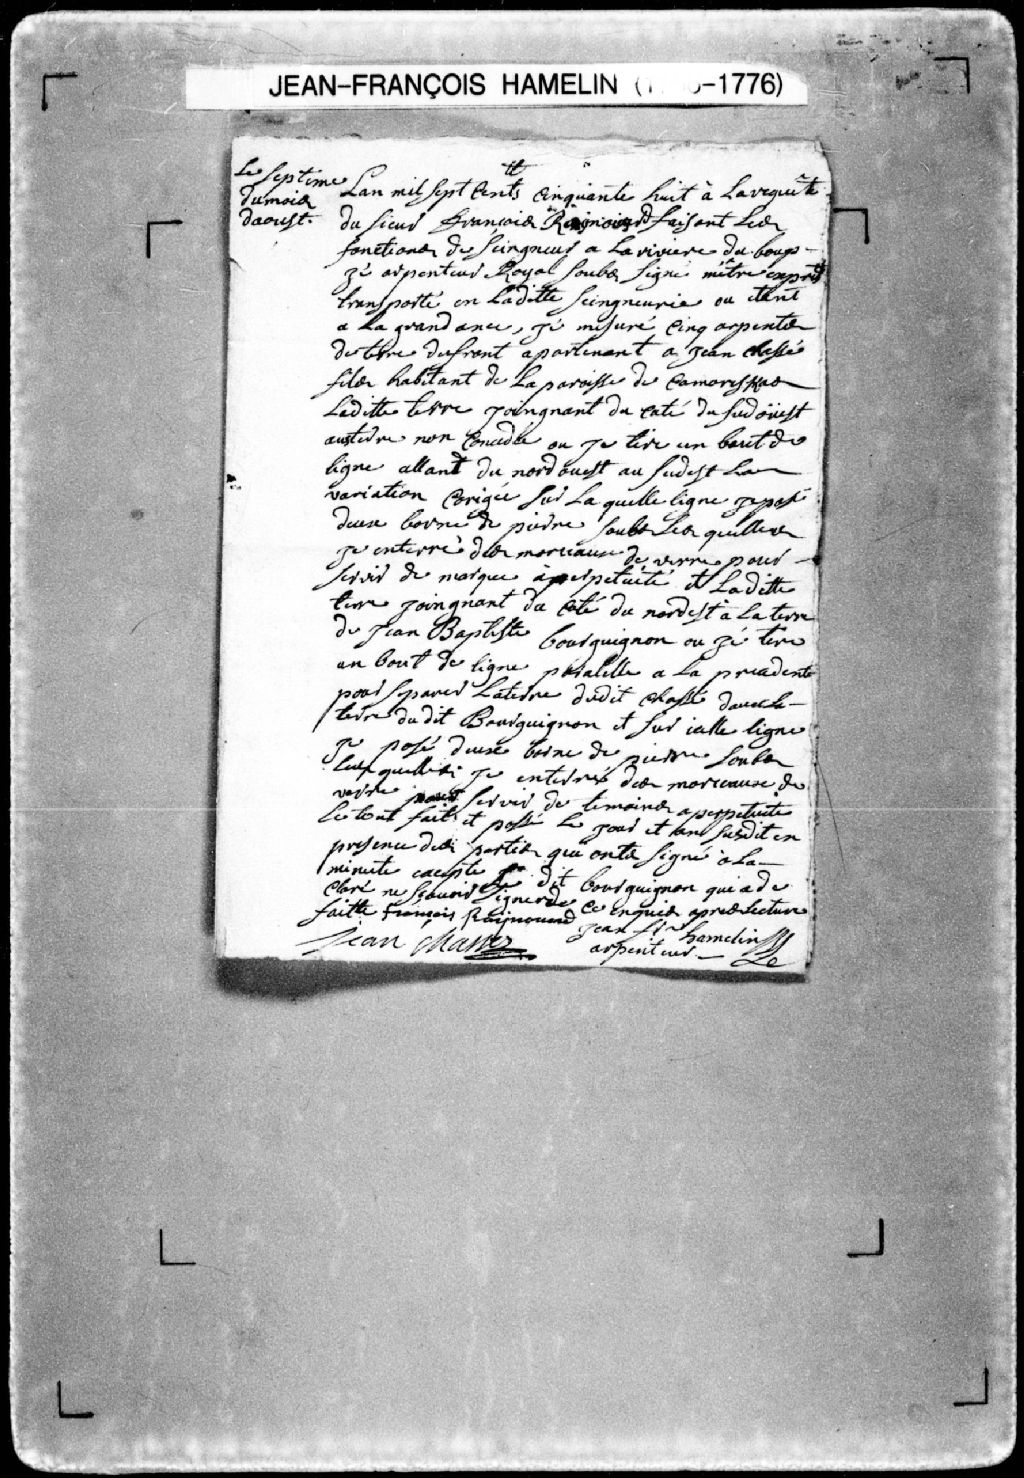 JEAN-FRANÇOIS HAMELIN (1 -1776)
Le septieme
du mois
daoust
Lan mil sept Cents Cinquante huit à La requête
du sieur François Raimond faisant Les
fonctions de Seingneur a La riviere du Loup
jé arpenteur Royal soubs signé mêtre exprés
transporté en Laditte seingneurie ou etant
a La grand ance, jé mesuré Cinq arpents
de tere de front apartenant a jean chassé
fils habitant de La paroisse de Camouraska
Laditte terre joingnant du Coté du sudoüest
au tere non Concedée ou je tire un bout de
ligne allant du nordouest au sudest La
variation Corigée sur La quelle ligne je posé
deux borne de piere soubs Les quelles
je enterré des morceaux de verre pour
servir de marque à perpetuité et Laditte
terre joingnant du Coté du nordest à La terre
de jean Baptiste bourguignon ou jé tiré
un bout de ligne paralelle a La precedente
pour separer La terre dudit chassé daveck
terre dudit Bourguignon et sur icelle ligne
je posé deux borne de pierre soubs
Lesquelles je enterrés des morceaux de
verre pour servir de temoins a perpetuité
Le tout fait et possé Le jour et lan susdit en
presence des parties qui ont signé à La
minute excepte Le dit bourguignon qui a de
claré ne sçavoir signer de ce enquis apres Lecture
faitte françois Raymound jean frs hamelin
jean chassez arpenteur